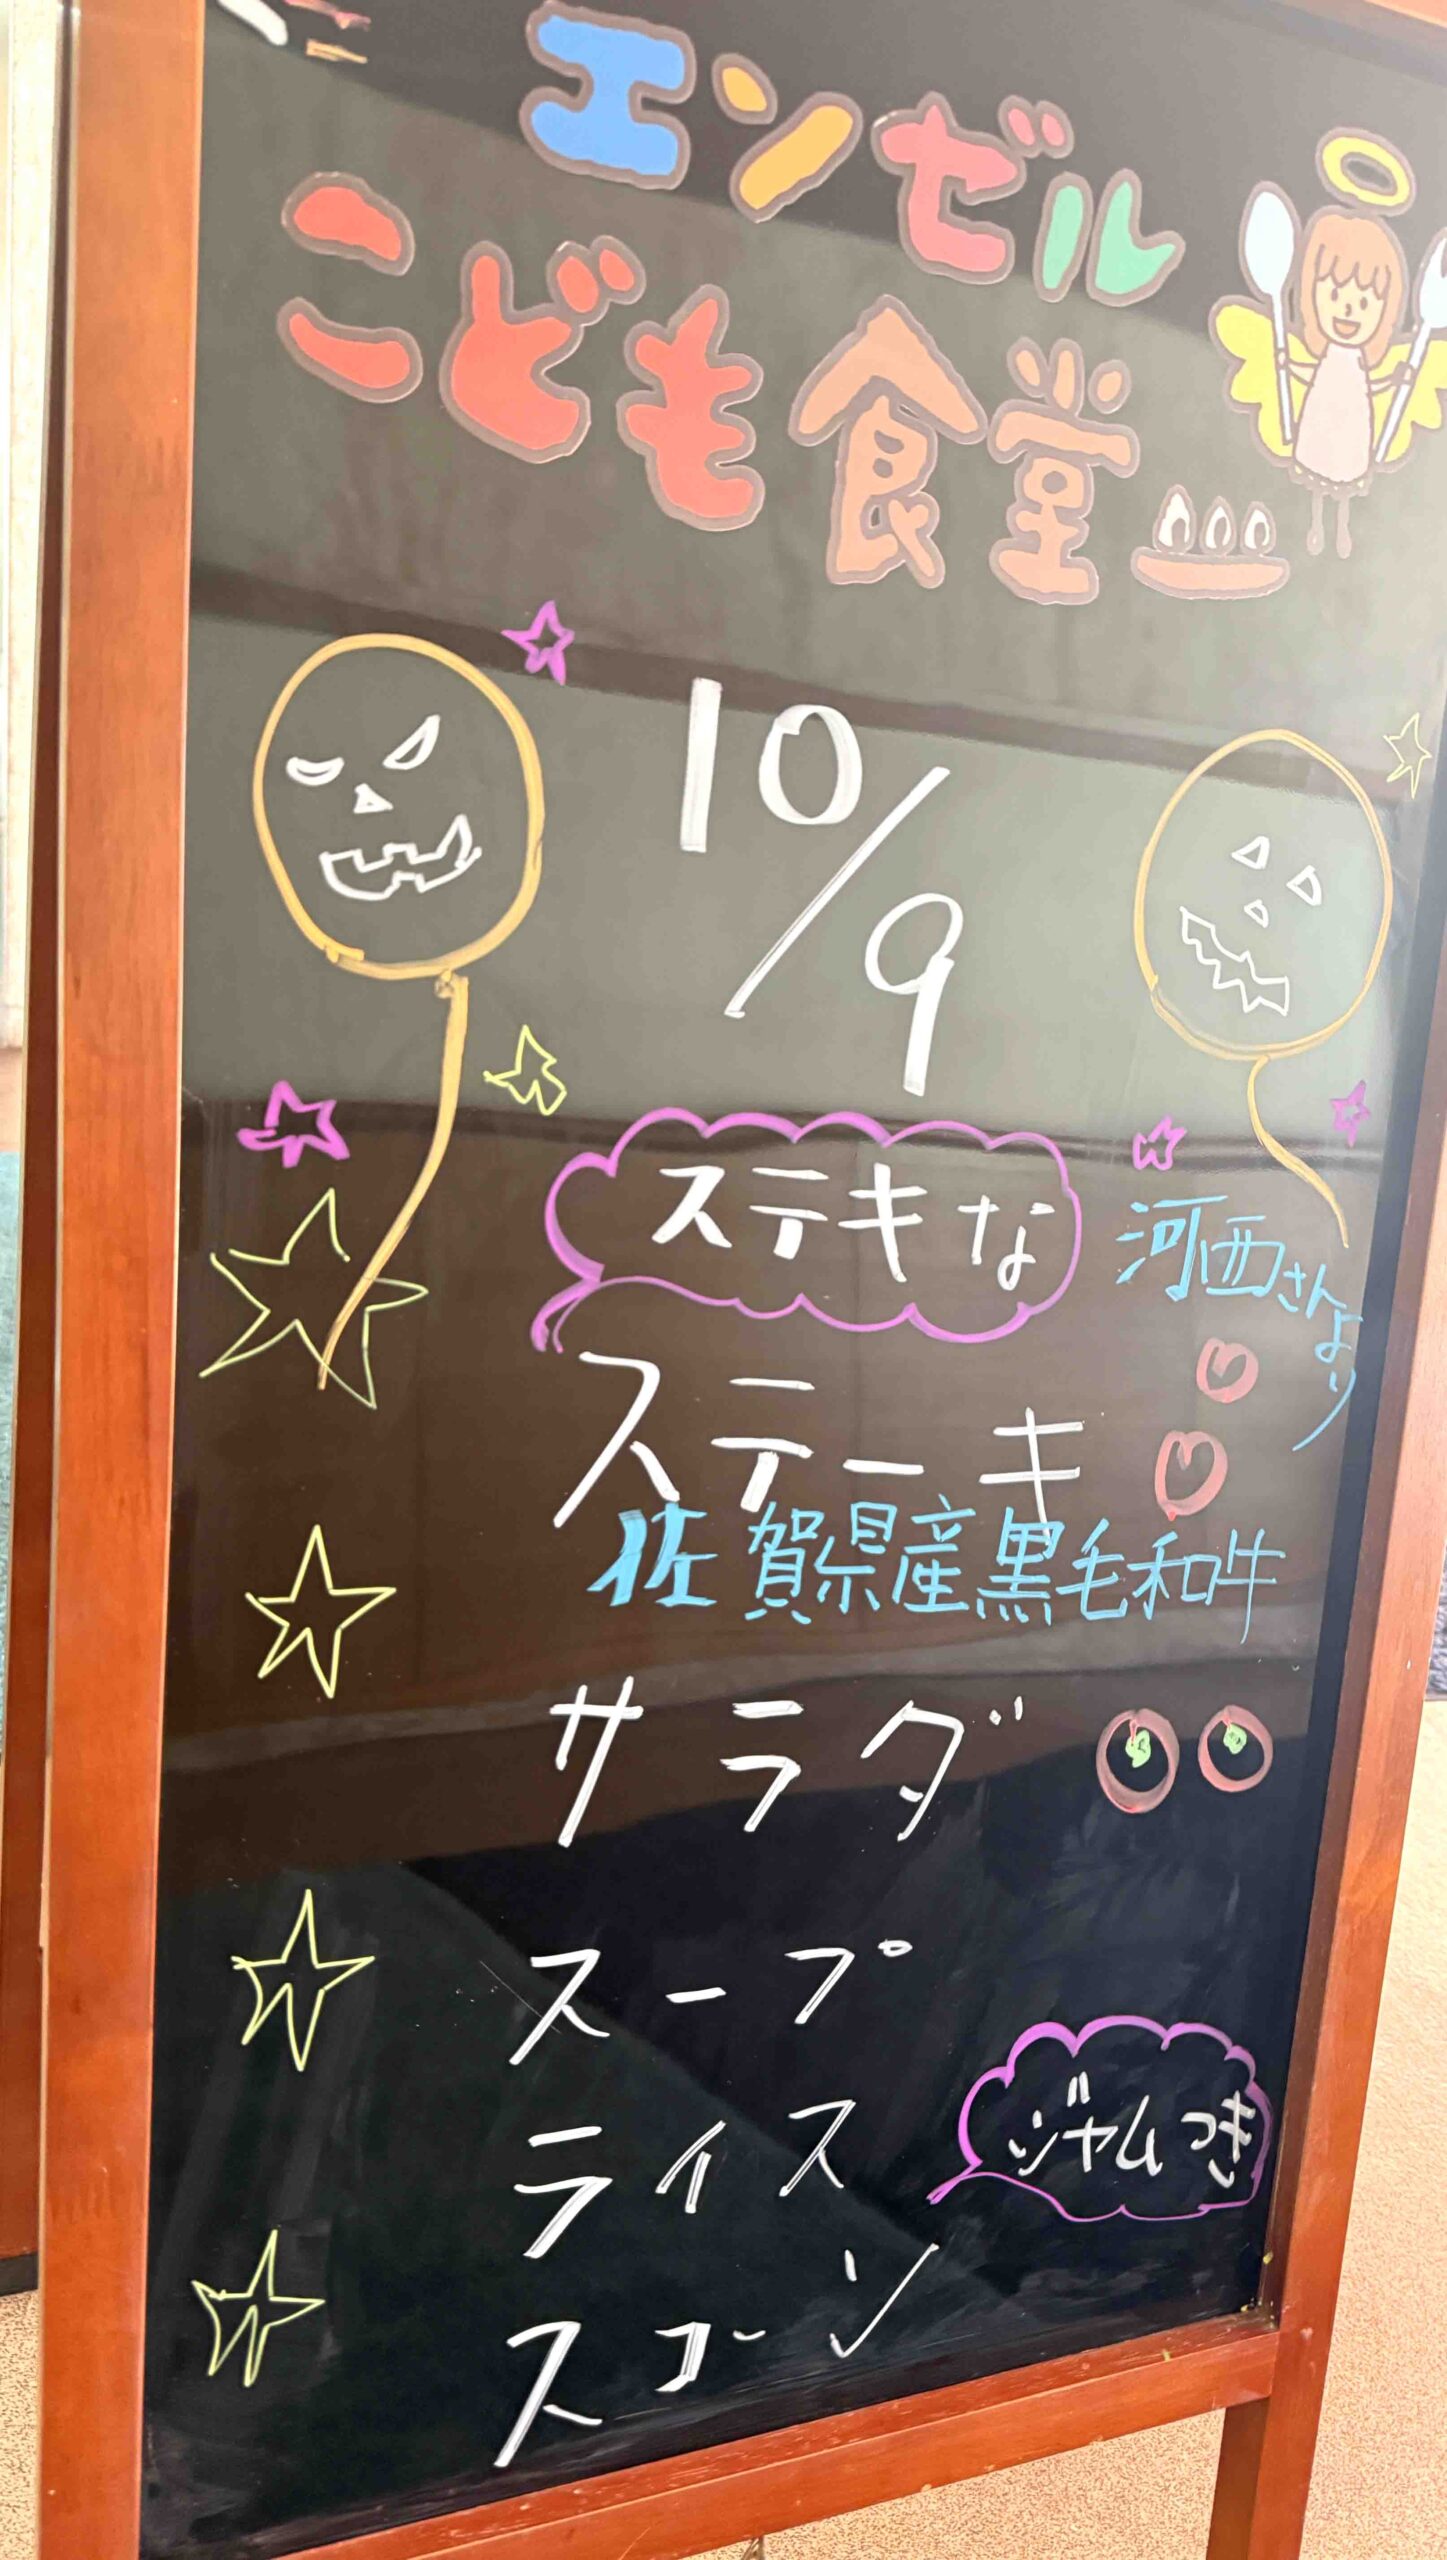 エンゼル
こども食堂
10/9
ステキな
河西さんより
ステーキ
佐賀県産黒毛和牛
サラダ
スープ
ライス
ジャムつき
スコーン